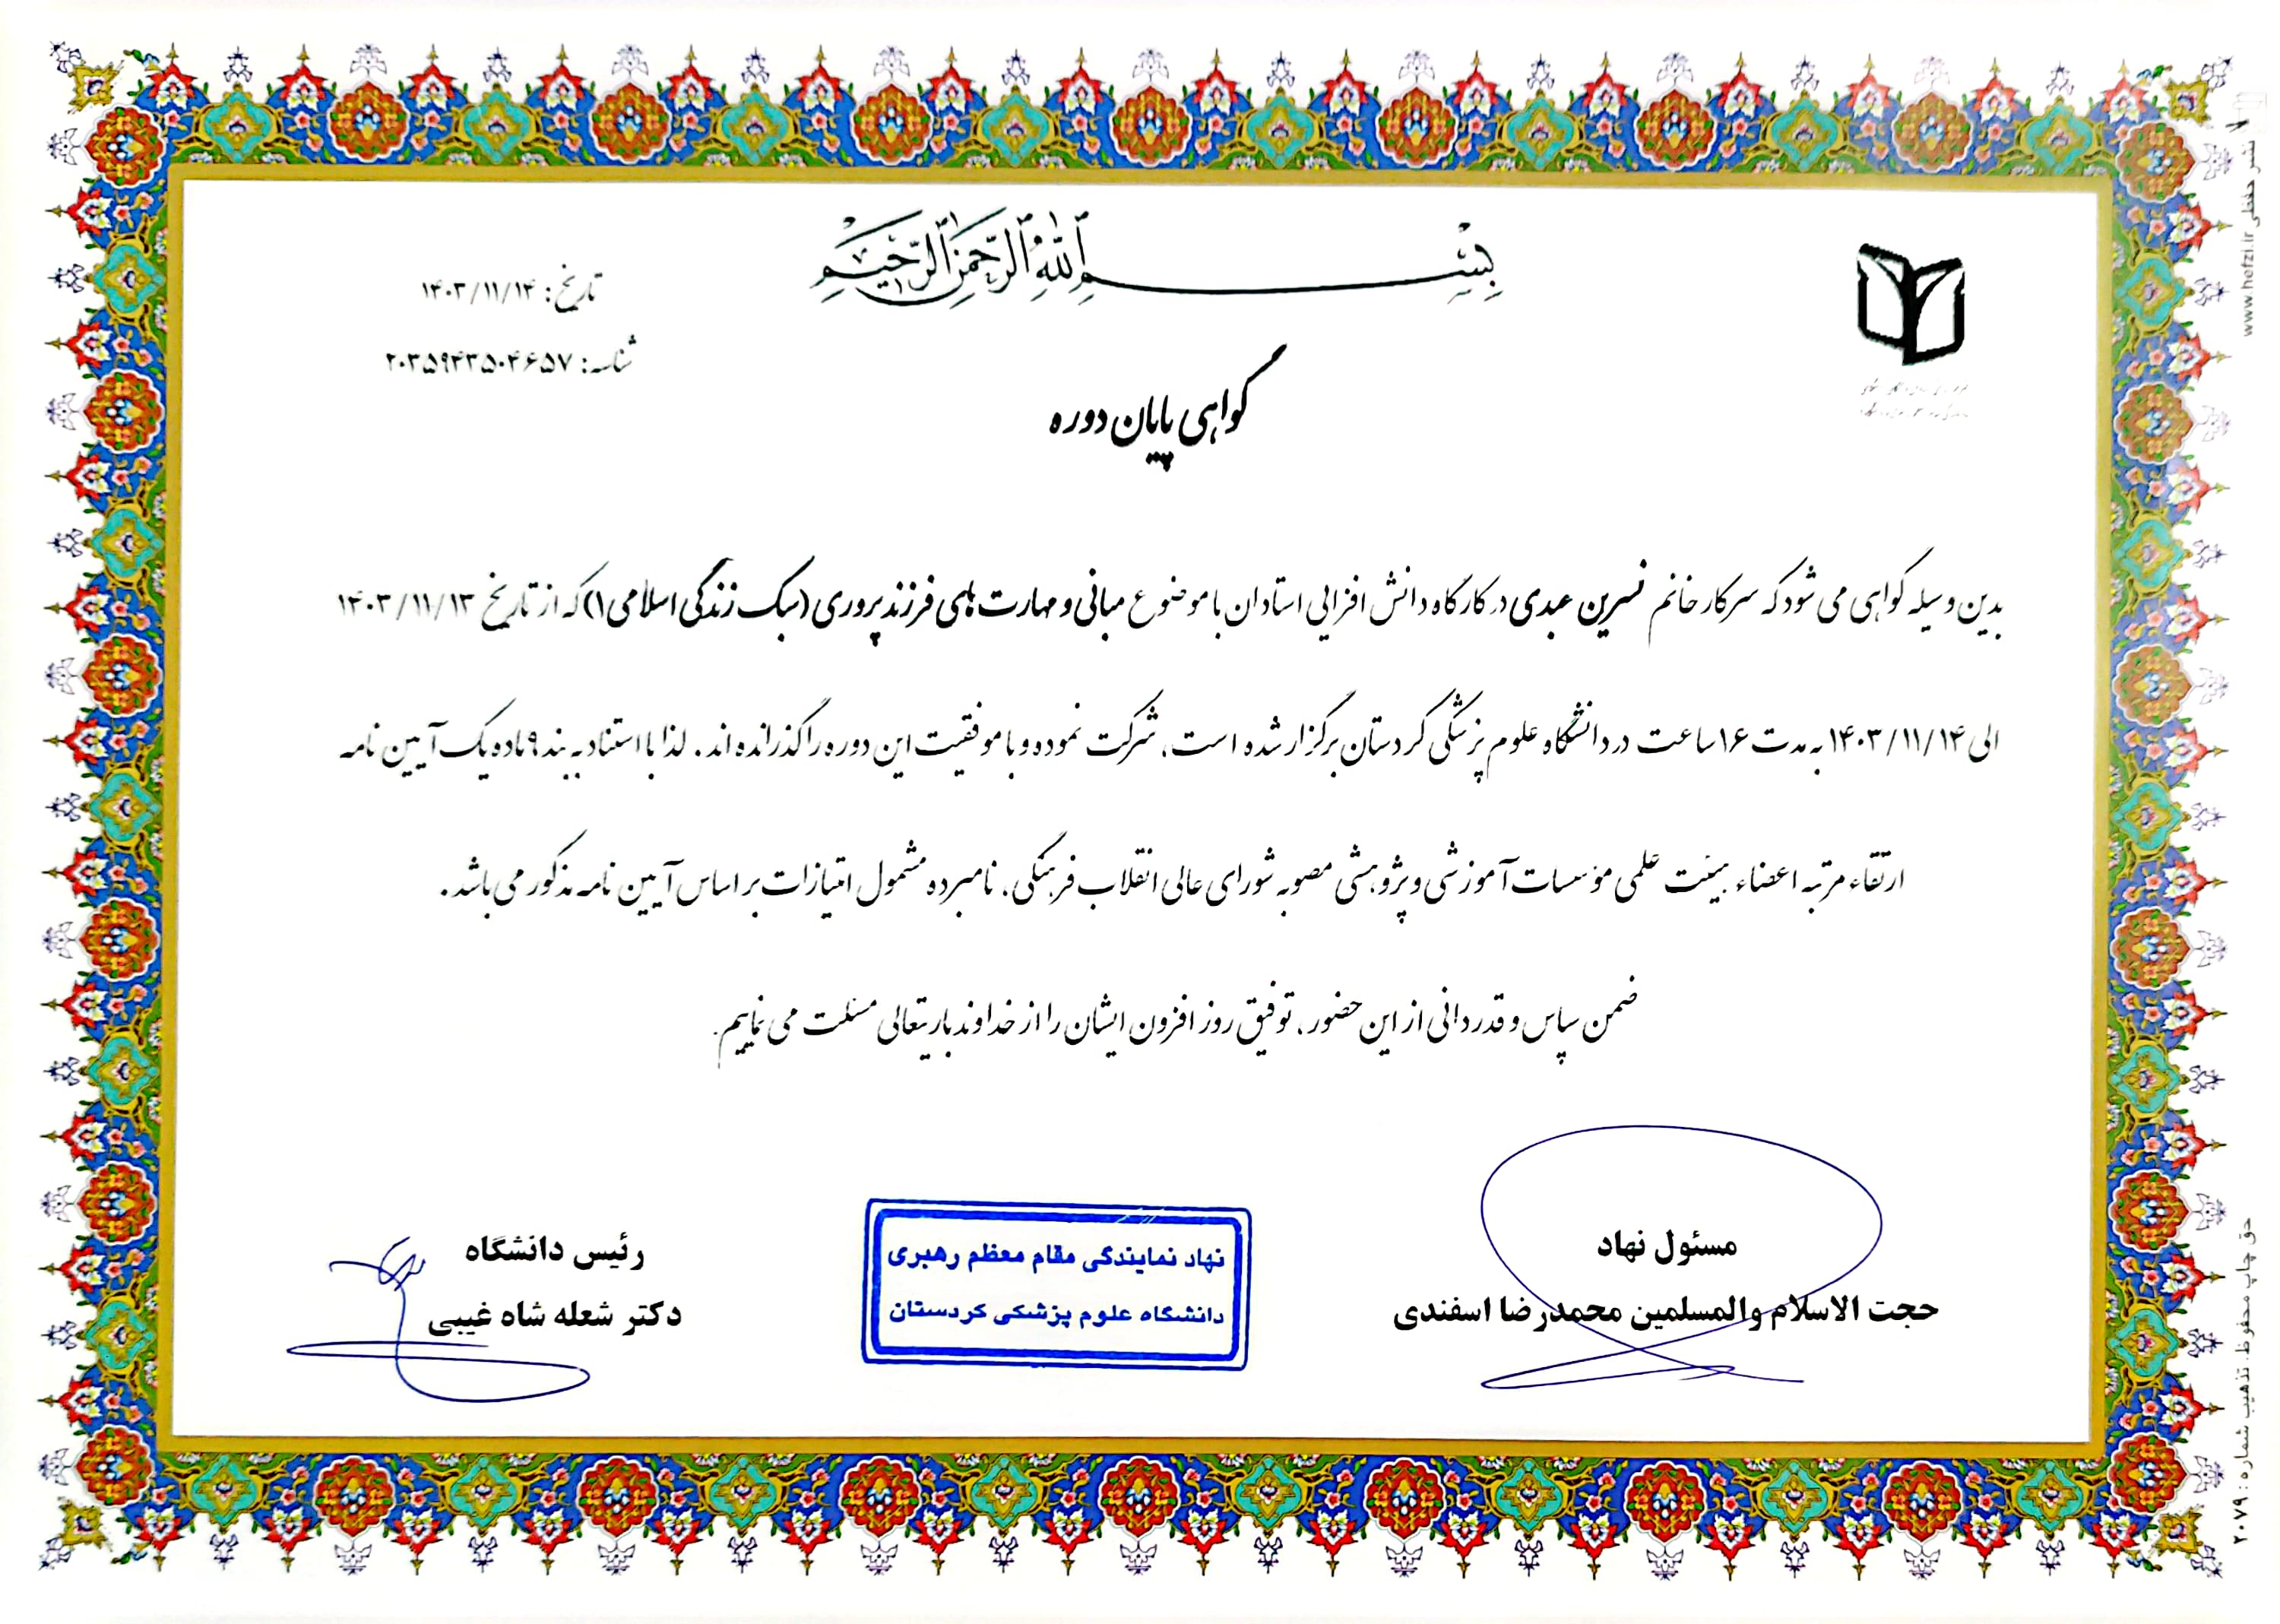 بِسْمِ ٱللَّهِ ٱلرَّحْمَٰنِ ٱلرَّحِيمِ
تاریخ: ۱۴۰۳/۱۱/۱۴
شناسه: ۲۰۳۵۹۴۳۵۰۴۶۵۷
گواهی پایان دوره
بدین وسیله گواهی می شود که سرکار خانم نسرین عبدی در کارگاه دانش افزایی استادان با موضوع مبانی و مهارت های فرزند پروری (سبک زندگی اسلامی۱) که از تاریخ ۱۴۰۳/۱۱/۱۳
الی ۱۴۰۳/۱۱/۱۴ به مدت ۱۶ ساعت در دانشگاه علوم پزشکی کردستان برگزار شده است، شرکت نموده و با موفقیت این دوره را گذرانده اند. لذا با استناد به بند ۹ ماده یک آیین نامه
ارتقاء مرتبه اعضاء هیئت علمی مؤسسات آموزشی و پژوهشی مصوبه شورای عالی انقلاب فرهنگی، نامبرده مشمول امتیازات بر اساس آیین نامه مذکور می باشد.
ضمن سپاس و قدردانی از این حضور، توفیق روز افزون ایشان را از خداوند باریتعالی مسئلت می نماییم.
مسئول نهاد
حجت الاسلام والمسلمین محمدرضا اسفندی
نهاد نمایندگی مقام معظم رهبری
دانشگاه علوم پزشکی کردستان
رئیس دانشگاه
دکتر شعله شاه غیبی
نشر حفظی www.hefzi.ir
حق چاپ محفوظ. تذهیب شماره: ۲۰۷۹